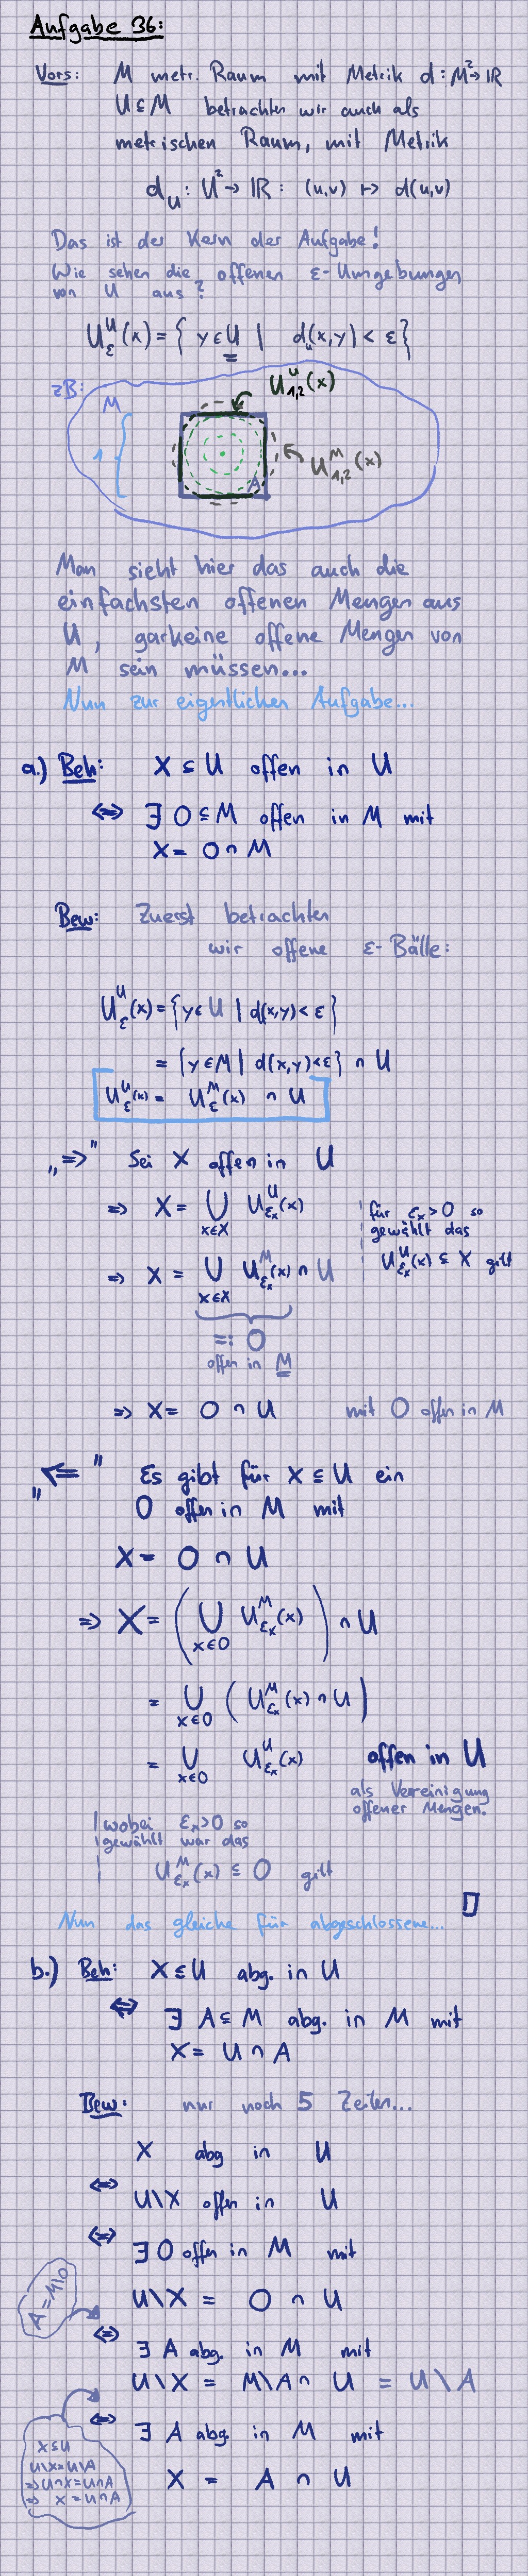 Aufgabe 36:
Vors: M metr. Raum mit Metrik d: M² → ℝ
U ⊆ M betrachten wir auch als
metrischen Raum, mit Metrik
d_U : U² → ℝ : (u,v) ↦ d(u,v)
Das ist der Kern der Aufgabe!
Wie sehen die offenen ε-Umgebungen
von U aus?
U_ε^U(x) = { y ∈ U | d_U(x,y) < ε }
U_{1,2}^U(x)
zB:
M
1
U_{1,2}^M(x)
A
Man sieht hier das auch die
einfachsten offenen Mengen aus
U, garkeine offene Mengen von
M sein müssen...
Nun zur eigentlichen Aufgabe...
a.) Beh: X ⊆ U offen in U
⇔ ∃ O ⊆ M offen in M mit
X = O ∩ M
Bew: Zuerst betrachten
wir offene ε-Bälle:
U_ε^U(x) = { y ∈ U | d(x,y) < ε }
= { y ∈ M | d(x,y) < ε } ∩ U
U_ε^U(x) = U_ε^M(x) ∩ U
„⇒" Sei X offen in U
⇒ X = ⋃_{x∈X} U_{ε_x}^U(x) | für ε_x > 0 so
gewählt das
U_{ε_x}^U(x) ⊆ X gilt
⇒ X = ⋃_{x∈X} U_{ε_x}^M(x) ∩ U
=: O
offen in M
⇒ X = O ∩ U mit O offen in M
„⇐" Es gibt für X ⊆ U ein
O offen in M mit
X = O ∩ U
⇒ X = ( ⋃_{x∈O} U_{ε_x}^M(x) ) ∩ U
= ⋃_{x∈O} ( U_{ε_x}^M(x) ∩ U )
= ⋃_{x∈O} U_{ε_x}^U(x) offen in U
als Vereinigung
offener Mengen.
| wobei ε_x > 0 so
| gewählt war das
| U_{ε_x}^M(x) ⊆ O gilt
□
Nun das gleiche für abgeschlossene...
b.) Beh: X ⊆ U abg. in U
⇔ ∃ A ⊆ M abg. in M mit
X = U ∩ A
Bew: nur noch 5 Zeilen...
X abg in U
⇔ U\X offen in U
⇔ ∃ O offen in M mit
U\X = O ∩ U
A = M\O
⇔ ∃ A abg. in M mit
U\X = M\A ∩ U = U\A
⇔ ∃ A abg. in M mit
X = A ∩ U
X ⊆ U
U\X = U\A
⇒ U∩X = U∩A
⇒ X = U∩A